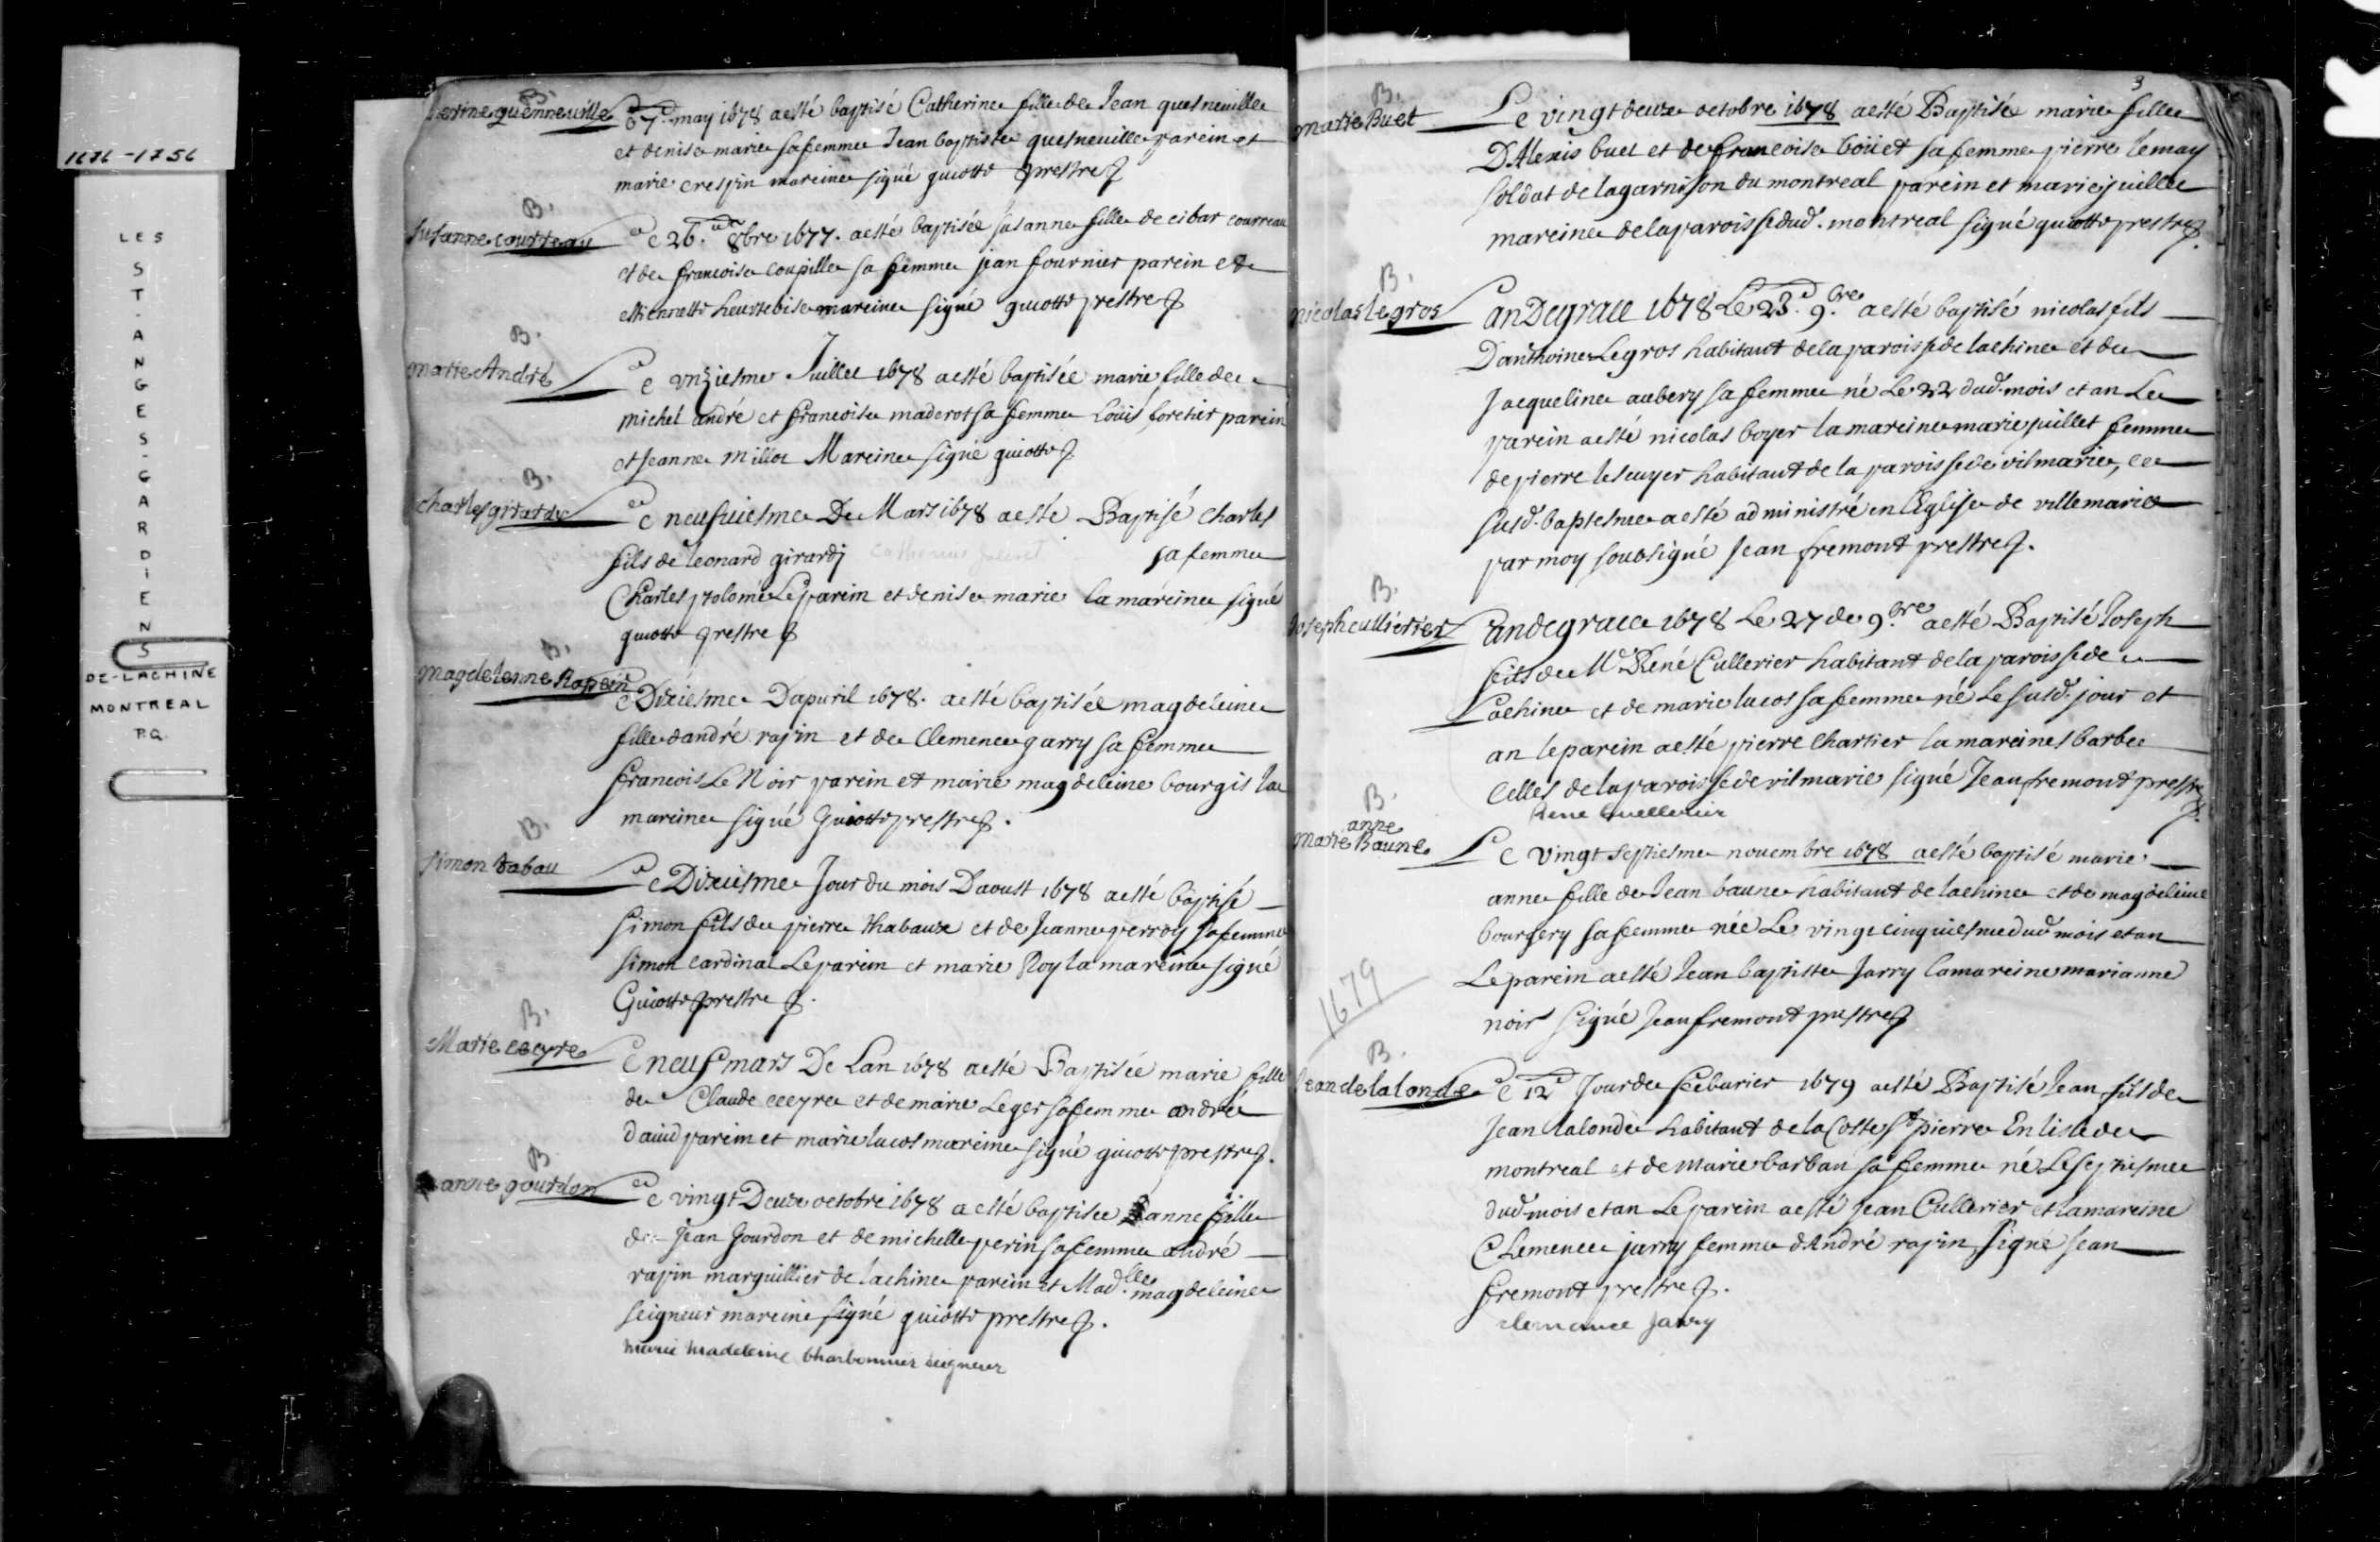 1676-1756
LES
ST-ANGES-GARDIENS
DE-LACHINE
MONTREAL
P.Q.
B.
herine quenneville
Le 7e may 1678 a esté baptisé Catherine fille de Jean quesneuille
et denise marie sa femme Jean baptiste quesneuille parein et
marie crespin mareine signé guiotte prestre
B.
Susanne courreau
Le 26. 8bre 1677. a esté baptisée susanne fille de cibar courreau
et de francoise coupille sa femme jean fournier parein et
estiennette heurtebise mareine signé guiotte prestre
B.
marie André
Le unziesme Juillet 1678 a esté baptisée marie fille de
michel andré et francoise maderot sa femme Louis foretier parein
et Jeanne millot Mareine signé guiotte
B.
charles girardy
Le neufuiesme De Mars 1678 a esté Baptisé charles
fils de leonard girardj sa femme
Charles ptolomé Le parein et denise marie la mareine signé
guiotte prestre
B.
magdeleine Rapein
Le Dixiesme Dapuril 1678. a esté baptisée magdeleine
fille dandré rapin et de Clemence garry sa femme
francois Le Noir parein et marie magdeleine bourgis la
mareine signé Guiotte prestre.
B.
simon tabau
Le Dixiesme Jour du mois Daoust 1678 a esté baptisé
simon fils de pierre thabaux et de Jeanne perroy sa femme
simon cardinal Le parein et marie Roy la mareine signé
Guiotte prestre.
B.
Marie ceeyre
Le neuf mars De Lan 1678 a esté Baptisée marie fille
de Claude ceeyre et de marie Leger sa femme andré
dauid parein et marie lucos mareine signé guiotte prestre.
B
anne gourdon
Le vingt Deux octobre 1678 a esté baptisee anne fille
de Jean Gourdon et de michelle perin sa femme andré
rapin marguillier de lachine parein et Mad.lle magdeleine
seigneur mareine signé guiotte prestre.
Marie Madeleine Charbonnier seigneur
3
B.
marie Buet
Le vingt deux octobre 1678 a esté Baptisée marie fille
D'Alexis buet et de francoise böüet sa femme pierre lemay
soldat de la garnison du montreal parein et marie juillée
mareine de la paroisse dud. montreal signé guiotte prestre.
B.
nicolas legros
Lan De grace 1678 Le 23. 9.bre a esté baptisé nicolas fils
Danthoine Legros habitant de la paroisse de lachine et de
Jacqueline aubery sa femme né Le 22 dud. mois et an Le
parein a esté nicolas boyer la mareine marie juillet femme
de pierre lescuyer habitant de la paroisse de vilmarie, ce
susd. baptesme a esté administré en Leglise de villemarie
par moy soubsigné Jean fremont prestre.
B.
Joseph cullierier
Lan de grace 1678 Le 27 de 9.bre a esté Baptisé Joseph
fils de Mr René Cullerier habitant de la paroisse de
Lachine et de marie lucos sa femme né Le susd. jour et
an le parein a esté pierre chartier la mareine barbe
Celles de la paroisse de vilmarie signé Jean fremont prestre
Rene Cuellerier
B.
anne
Marie Baune
Le vingt septiesme nouembre 1678 a esté baptisé marie
anne fille de Jean baune habitant de lachine et de magdeleine
bourgery sa femme née Le vingt cinquiesme dud mois et an
Le parein a esté Jean baptiste Jarry la mareine marianne
noir signé Jean fremont prestre
1679
B.
Jean de lalonde
Le 12e Jour de feburier 1679 a esté Baptisé Jean fils de
Jean lalonde habitant de la Coste St pierre En lisle de
montreal et de Marie barbau sa femme né Le septiesme
dud mois et an Le parein a esté Jean Cullerier et la mareine
Clemence jarry femme d'André rapin signé jean
fremont prestre.
clemance Jarry